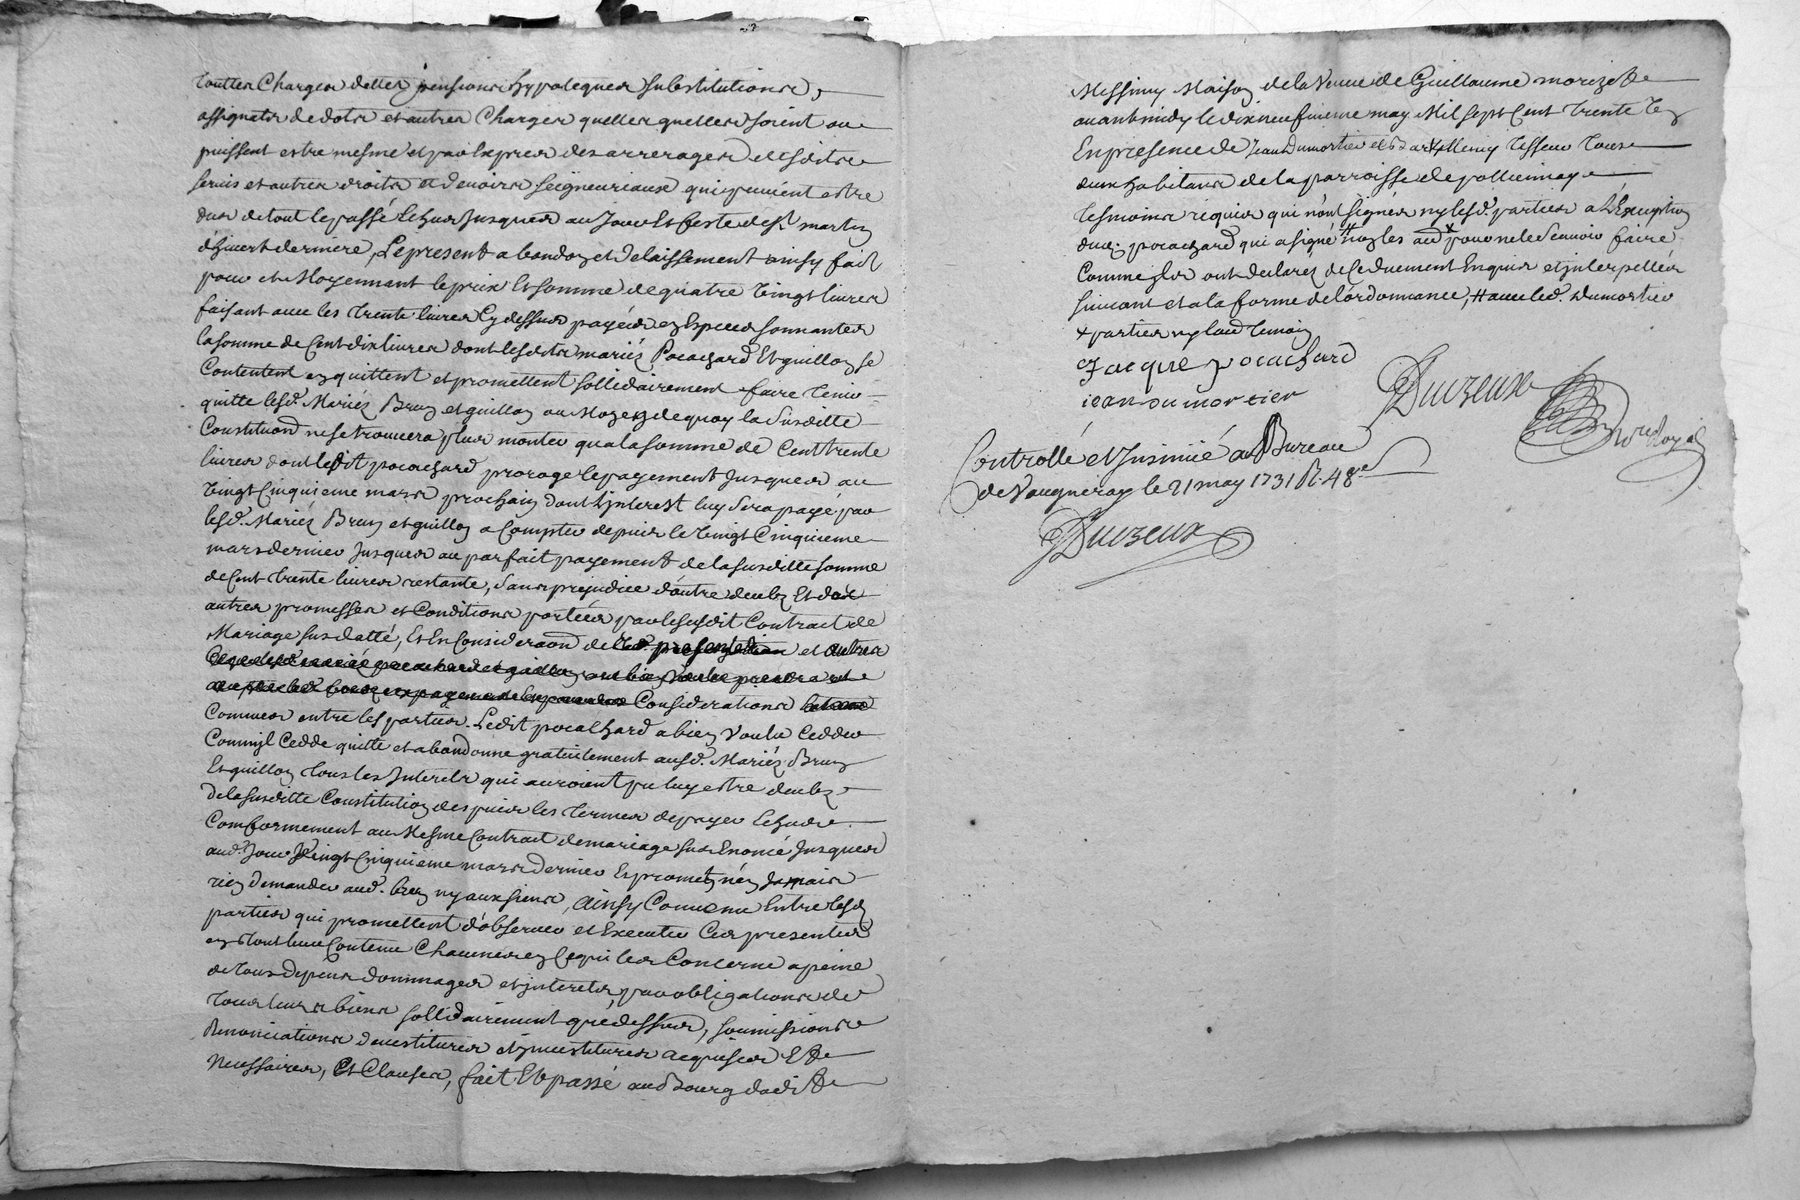 touttes Charges dettes pensions hypoteques substitutions,
assignats de dots et autres Charges quelles quelles soient ou
puissent estre mesme et par expres des arrerages desdits
servis et autres droits et devoirs seigneuriaux qui peuvent estre
dus de tout le passé Echus Jusques au Jour Et feste de st martin
d'hivert derniere, Le present abandon et delaissement ainsy fait
pour et Moyennant le prix Et somme de quatre vingt livres
faisant avec les trente livres Cy dessus payés en Especes sonnantes
la somme de Cent dix livres dont lesdits mariés Pocachard Et guillon se
Contentent en quittent et promettent sollidairement faire tenir
quitte lesd. Mariés Brun et guillon au Moyen de quoy la susditte
Constituon ne se trouvera plus monter qua la somme de Cent trente
livres dont ledit pocachard proroge le payement Jusques au
vingt Cinquieme mars prochain dont L'interest luy sera payé par
lesd. Mariés Brun et guillon a Compter depuis le vingt Cinquieme
mars dernier Jusques au parfait payement de la susditte somme
de Cent trente livres restante, sans prejudice d'autre deubz Et des
autres promesses et Conditions portées par le susdit Contract de
Mariage sus datté, Et En Consideraon de et autres
Considerations
Connues entre les parties. Ledit pocachard a bien voulu Cedder
Comm'il Cedde quitte et abandonne gratuitement ausd. Mariés Brun
Et guillon tous les Interets qui auroient pu luy estre deubz
de la susditte Constitution despuis les termes de payer Echus
Comformement au Mesme Contract de mariage sus Enoncé Jusques
aud. Jour vingt Cinquieme mars dernier Et promet n'en Jamais
rien demander aud. brun ny aux siens, ainsy Convenu Entre lesd
parties qui promettent d'observer et Executer Ces presentes
en tout leur Contenu Chacunes en Ce qui les Concerne a peine
de tous depens dommages et interets, par obligations de
tous leurs biens sollidairement que dessus, soumissions
Renonciations devestitures et investitures acquises Et
Necessaires, Et Clauses, fait Et passé au Bourg dudit
Messimy Maison de la Veuve de Guillaume morizot
avant midy le dix neufvieme may Mil sept Cent trente
En presence de Jean Dumortier et tesseur tous
deux habitans de la parroisse de pollionnay
tesmoins requis qui n'ont signés ny lesd. parties a L'Exception
dud. pocachard qui a signé # non les aud x pour ne le sçavoir faire
Comme ils ont declarés de Ce duement Enquis et interpellés
suivant et a la forme de l'ordonnance, # avec led. Dumortier
x parties ny laud temoin
Jacque pocachard
iean du mortier
Duvzeux
Nore Royal
Controllé et Insinué au Bureau
de Vaugneray le 21 may 1731 R. 48s
Duvzeux